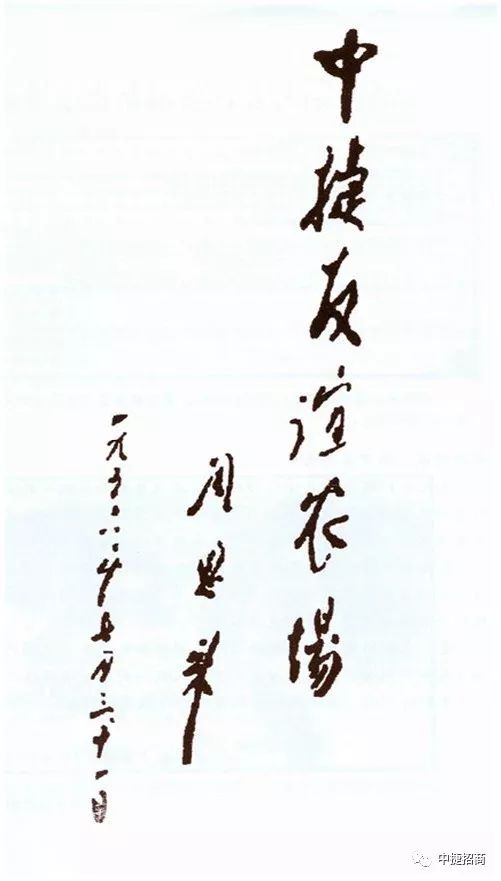 中捷友谊农場
周恩来
一九五八年七月三十一日
中捷招商